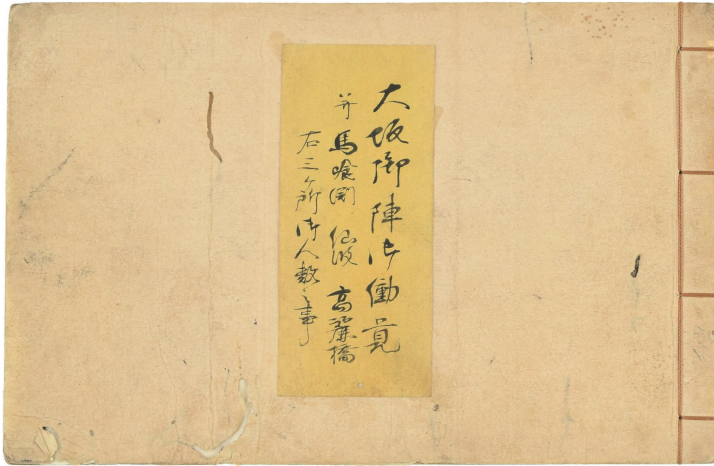 大坂御陣御働覚
并馬喰渕 仙波 高麗橋
右三ケ所御人数之事